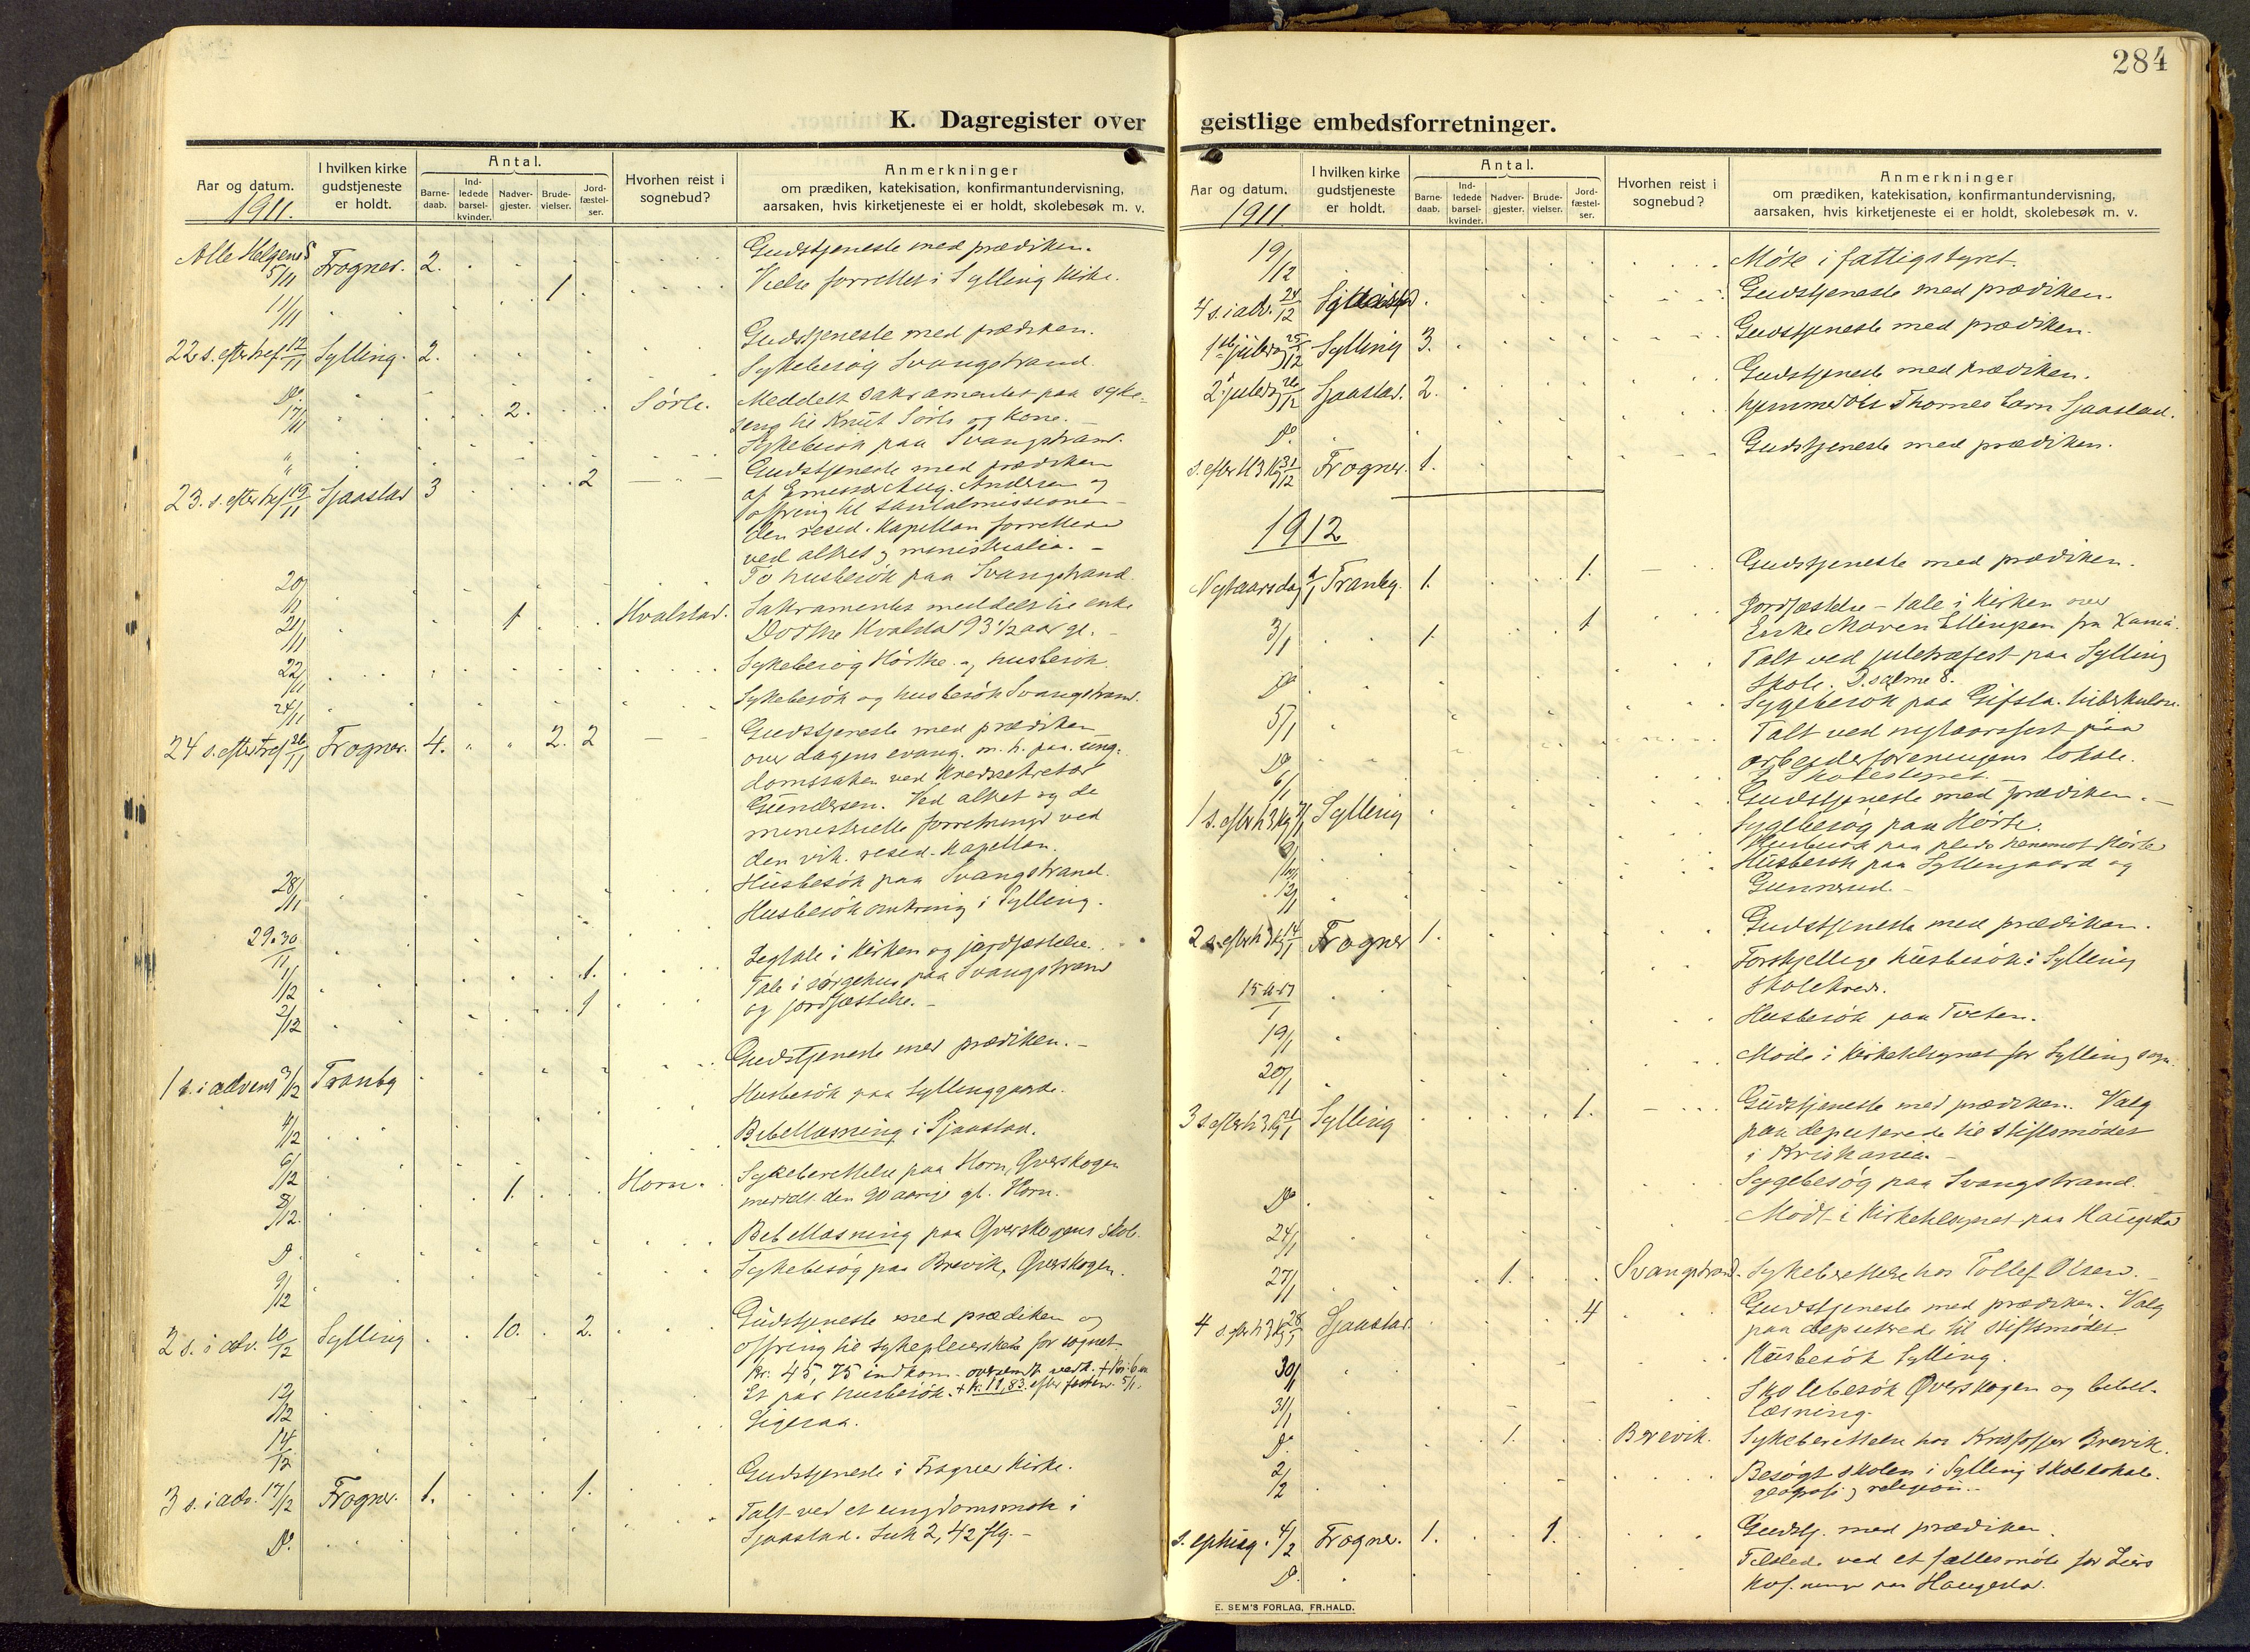 284
K. Dagregister over geistlige embedsforretninger.
Aar og datum.
1911.
I hvilken kirke gudstjeneste er holdt.
Antal.
Barne-daab.
Ind-ledede barsel-kvinder.
Nadver-gjester.
Brude-vielser.
Jord-fæstel-ser.
Hvorhen reist i sognebud?
Anmerkninger
om prædiken, katekisation, konfirmantundervisning,
aarsaken, hvis kirketjeneste ei er holdt, skolebesøk m. v.
Alle Helgens 5/11 Frogner. 2. Gudstjeneste med prædiken.
11/11 1. Vielse forrettet i Sylling Kirke.
22 s. efter tref. 12/11 Sylling. 2. Gudstjeneste med prædiken.
Do. Sykebesøg Svangstrand.
17/11 2. Sørli. Meddelt sakramentet paa syke-
seng til Knut Sørli og kone.
" Sykebesøk paa Svangstrand.
23. s. efter tref 19/11 Sjaastad 3 2 Gudstjeneste med prædiken
af Aug. Andersen og
ofring til Santalmissionen
den resid. Kapellan forrettede
ved altret og ministralia.
20/11 To husbesøk paa Svangstrand
21/11 1 Hvalstad. Sakramentet meddelt til enke
Dorthe Hvalstad 93 1/2 aar gl.
22/11 Sykebesøg Hørthe og husbesøk.
24/11 Sykebesøk og husbesøk Svangstrand.
24 s. efter tref 26/11 Frogner. 4. " " 2. 2 Gudstjeneste med prædiken
over dagens evang. m. h. paa ung-
domssaken ved Kredssekretær
Gundersen. Ved altret og de
ministrielle forretninger ved
den vik. resid. Kapellan.
28/11 Husbesøk paa Svangstrand.
29.30/11 Husbesøk omkring i Sylling.
1/12 1. tale i Kirken og jordfæstelse.
2/12 1 Tale i sørgehus paa Svangstrand
og jordfæstelse.
1 s. i advent 3/12 Tranby Gudstjeneste med prædiken.
4/12 Husbesøk paa Syllinggaarde.
6/12 Bibellæsning i Sjaastad.
8/12. 1. Horn. Sykeberettelse paa Horn, Øverskogen
meddt. den 90 aarige gl. Horn.
D. Bibellæsning paa Øverskogens skole.
9/12 Sykebesøg paa Brevik, Øverskogen.
2 s. i adv. 10/12 Sylling 10. 2. Gudstjeneste med prædiken og
ofring til sykepleiersken for sognet
Kr. 45,75 indkom. oversendt vedk. + Kr. 6
12/12 Et par husbesøk. + kr. 11,83. efter 5/1.
14/12 Ligesaa.
3 s. i adv. 17/12 Frogner. 1. 1. Gudstjeneste i Frogner Kirke.
D. Talt ved et ungdomsmøte i
Sjaastad. Luk 2,42 flg.
Aar og datum.
1911.
I hvilken kirke gudstjeneste er holdt.
Antal.
Barne-daab.
Ind-ledede barsel-kvinder.
Nadver-gjester.
Brude-vielser.
Jord-fæstel-ser.
Hvorhen reist i sognebud?
Anmerkninger
om prædiken, katekisation, konfirmantundervisning,
aarsaken, hvis kirketjeneste ei er holdt, skolebesøk m. v.
19/12 Møte i fattigstyret.
4 s. i adv. 24/12 Gudstjeneste med prædiken.
1ste juledag 25/12 Sylling 3. Gudstjeneste med prædiken.
2. juledag 26/12 Sjaastad. 2. Gudstjeneste med prædiken.
Do. hjemmedøbt Thornes barn Sjaastad.
s. efter 31/12 Frogner. 1. Gudstjeneste med prædiken.
1912
Nytaarsdag 1/1 Tranby. 1. 1. Gudstjeneste med prædiken.
3/1 1. 1 Jordfæstelse – tale i Kirken over
Enke Maren Ellingsen fra
Do Talt ved juletræfest paa Sylling
Skole. Psalme 8.
5/1 Sygebesøk paa Gifsta.
Do Talt ved nytaarsfest paa
arbeiderforeningens lokale.
6/1 I Skolestyret.
1 s. efter h3kg 7/1 Sylling Gudstjeneste med prædiken.
9/1 Sygebesøg paa Hørte.
Husbesøk paa henimot Hørte
12/1 Husbesøk paa Syllingaard og
Gunnerud.
2 s. efter h3kg 14/1 Frogner 1. Gudstjeneste med prædiken.
15.-17/1 Forskjellige husbesøk i Sylling
skolekreds.
19/1 Husbesøk paa Tveten.
20/1 Møde i Kirketilsynet for Sylling sogn.
3 s. efter h3kg 21/1 Sylling 1. Gudstjeneste med prædiken. Valg
paa deputerede til stiftsmødet
i Kristiania.
Do Sygebesøg paa Svangstrand.
24/1 Møde i Kirketilsynet paa Haugesta
27/1 1. Svangstrand. Sykeberettelse hos Tollef Olsen.
4 s. efter h3kg 28/1 Sjaastad 4 Gudstjeneste med prædiken. Valg
paa deputerede til stiftsmødet
30/1 Husbesøk Sylling.
31/1 Skolebesøk Øverskogen og bibel-
læsning.
D. 1. Brevik. Sykeberettelse hos Kristoffer Brevik.
2/2 Besøgt skolen i Sylling skolelokale.
geografi og religion.
s. 4/2 Frogner. 1. 1. Gudstj. med prædiken.
D. Tilstede ved et fællesmøte for Liers
paa Haugesta.
E. SEM'S FORLAG, FR.HALD.